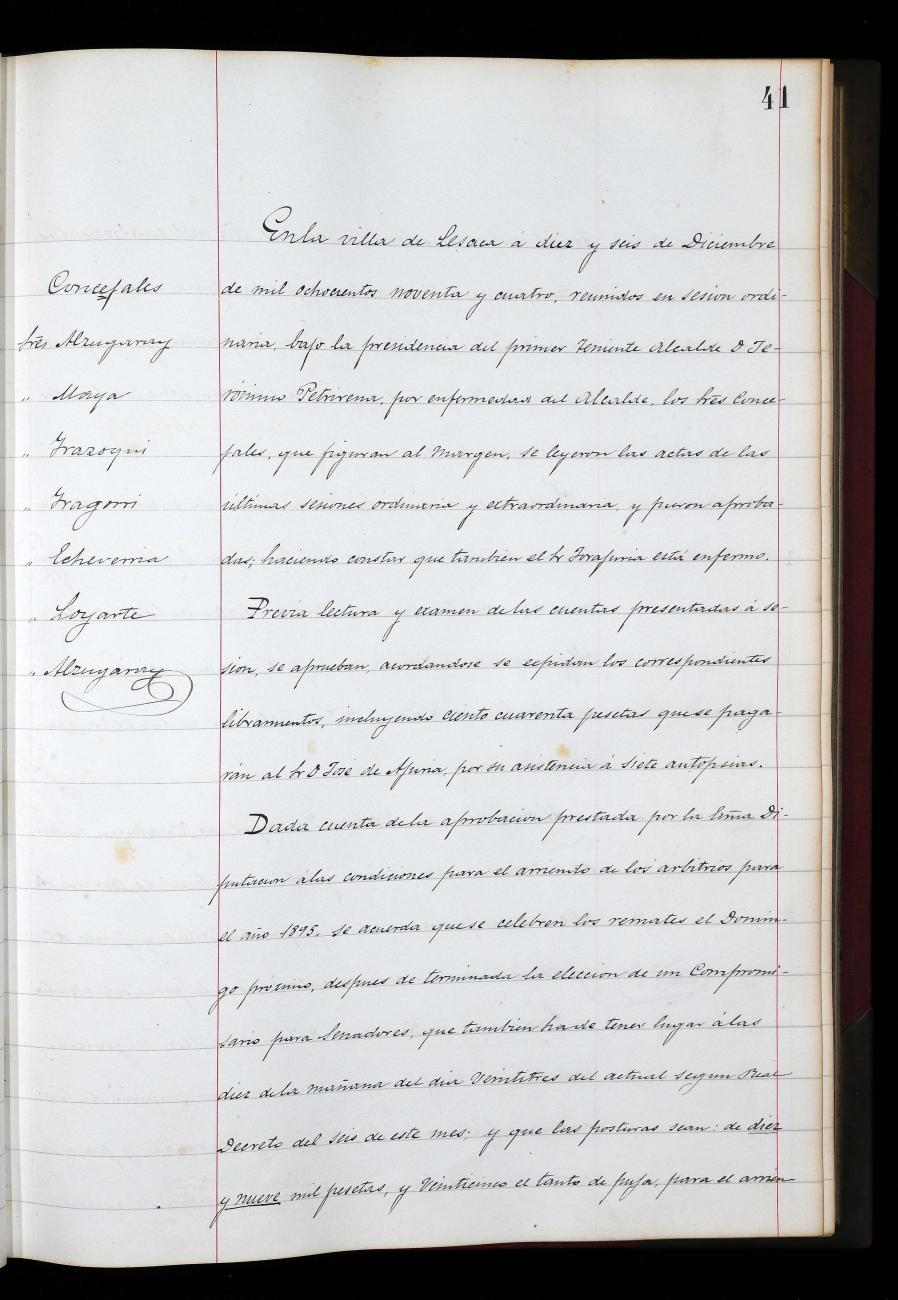 41
En la villa de Lesaca á diez y seis de Diciembre
de mil ochocientos noventa y cuatro, reunidos en sesion ordi-
naria, bajo la presidencia del primer Teniente Alcalde D Je-
rónimo Petrirena, por enfermedad del Alcalde, los tres Conce-
jales, que figuran al margen, se leyeron las actas de las
últimas sesiones ordinaria y extraordinaria, y fueron aproba-
das; haciendo constar que tambien el Sr está enfermo.
Previa lectura y examen de las cuentas presentadas á se-
sion, se aprueban, acordandose se espidan los correspondientes
libramientos, incluyendo ciento cuarenta pesetas que se paga-
rán al Sr D José de Apuria, por su asistencia á siete autopsias.
Dada cuenta de la aprobacion prestada por la Di-
putacion á las condiciones para el arriendo de los arbitrios para
el año 1895, se acuerda que se celebren los remates el Domin-
go próximo, despues de terminada la eleccion de un Compromi-
sario para Senadores, que tambien ha de tener lugar á las
diez de la mañana del dia Veintitres del actual segun Real
Decreto del seis de este mes; y que las posturas sean: de diez
y nueve mil pesetas, y Veinticinco el tanto de puja, para el arrien
Concejales
tres Alzugaray
„ Maya
„ Irazoqui
„ Iragorri
„ Echeverria
„ Loyarte
„ Alzugaray